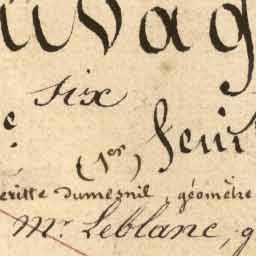 uvag
six
(1er) feui
eritte Dumesnil, géomètre
Mr. Leblanc, g